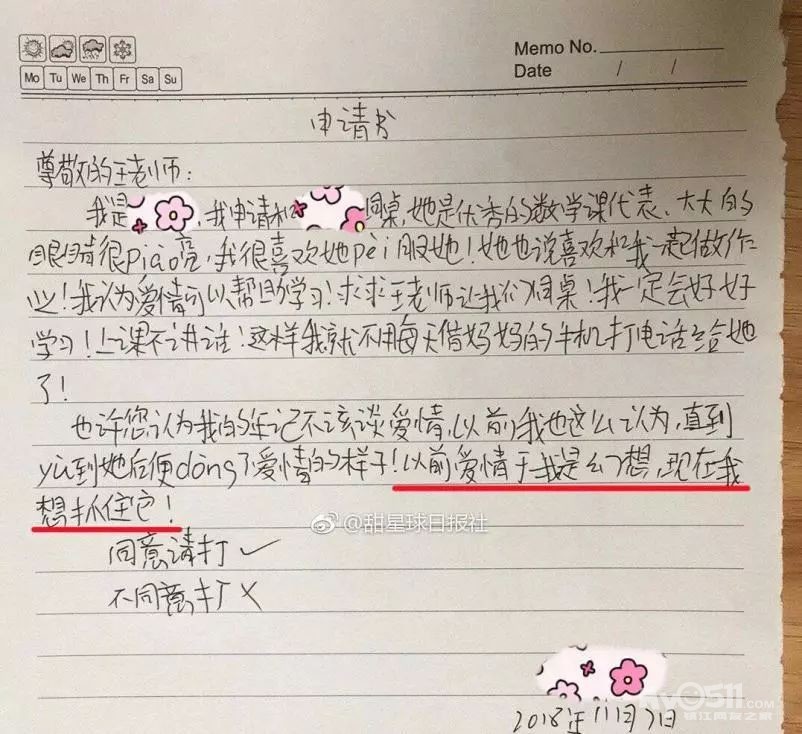 Memo No.
Mo Tu We Th Fr Sa Su
Date / /
申请书
尊敬的王老师：
我是，我申请和同桌，她是优秀的数学课代表、大大的
眼睛很piào亮，我很喜欢她pèi服她！她也说喜欢和我一起做作
业！我认为爱情可以帮助学习！求求王老师让我们同桌！我一定会好好
学习！上课不讲话！这样我就不用每天借妈妈的手机打电话给她
了！
也许您认为我的年记不该谈爱情，以前我也这么认为，直到
yù到她后便dǒng了爱情的样子！以前爱情于我是幻想，现在我
想抓住它！
同意请打✓
不同意打×
@甜星球日报社
2018年11月7日
my0511.COM
镇江网友之家